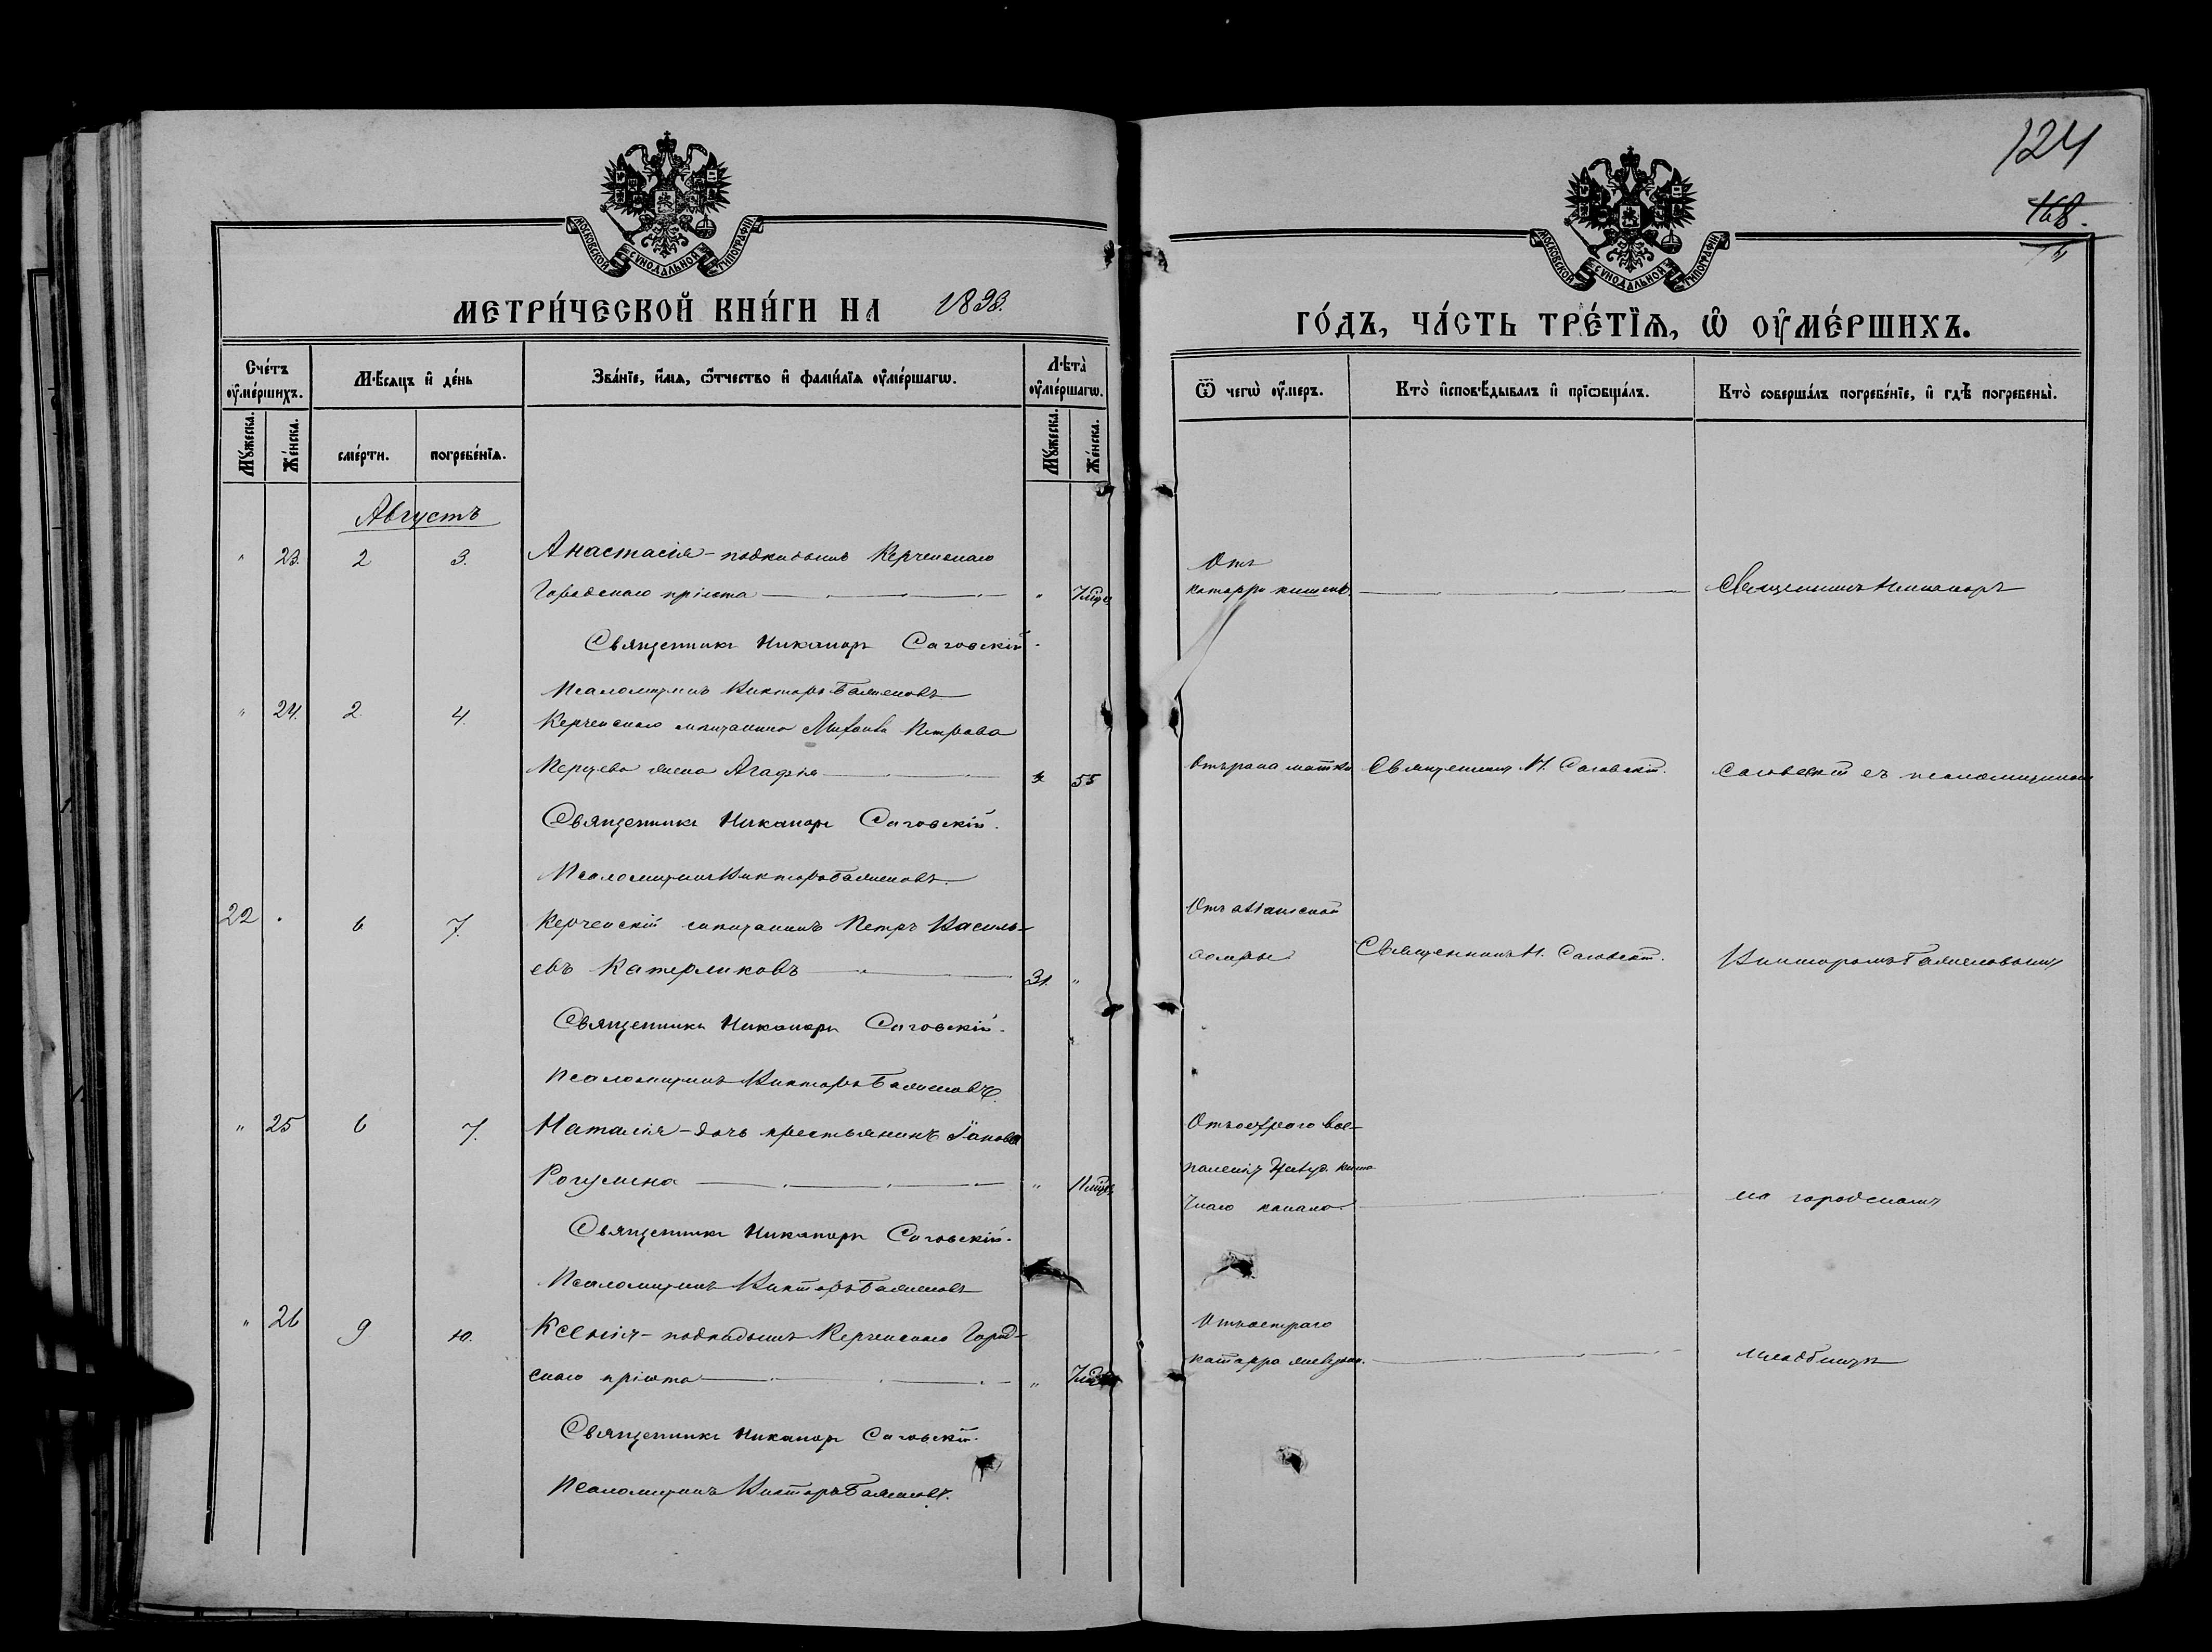 124
168.
МОСКОВСКОЙ СѴНОДАЛЬНОЙ ТИПОГРАФІИ
МОСКОВСКОЙ СѴНОДАЛЬНОЙ ТИПОГРАФІИ
МЕТРИ́ЧЕСКОЙ КНИ́ГИ НА 1893.
ГО́ДЪ, ЧА́СТЬ ТРЕ́ТЇѦ, Ѿ ОУ҆МЕ́РШИХЪ.
Сче́тъ оу҆ме́ршихъ.
Мꙋ́жеска.
Же́нска.
Мѣ́сѧцъ и҆ де́нь
сме́рти.
погребе́нїѧ.
Зва́нїе, и҆́мѧ, ѻ҆́тчество и҆ фами́лїѧ оу҆ме́ршагѡ.
Лѣ́та оу҆ме́ршагѡ.
Мꙋ́жеска.
Же́нска.
Ѿ чегѡ̀ оу҆́меръ.
Кто̀ и҆сповѣ́дывалъ и҆ прїѡбща́лъ.
Кто̀ соверша́лъ погребе́нїе, и҆ гдѣ̀ погребены̀.
Августъ
" 23. 2 3. Анастасія - подкидышъ Керченскаго
Городского пріюта " 7 мѣс.
Отъ
катарра кишекъ.
Священникъ Никаноръ
Священникъ Никаноръ Саговскій.
Псаломщикъ Викторъ Баженовъ
" 24. 2. 4. Керченскаго мѣщанина Михаила Петрова
Перцева жена Агафія 55
Отъ рака матки Священникъ Н. Саговскій. Саговскій съ псаломщикомъ
Священникъ Никаноръ Саговскій.
Псаломщикъ Викторъ Баженовъ.
22 . 6 7. Керченскій мѣщанинъ Петръ Василь-
евъ Катерликовъ 31. "
Отъ азіатской
холеры Священникъ Н. Саговскій. Викторомъ Баженовымъ
Священникъ Никаноръ Саговскій.
Псаломщикъ Викторъ Баженовъ.
" 25 6 7. Наталія - дочь крестьянина Іакова
Рогулина " 11 мѣс.
Отъ остраго вос-
паленія желуд. кише
чнаго канала
на городскомъ
Священникъ Никаноръ Саговскій.
Псаломщикъ Викторъ Баженовъ
" 26 9 10. Ксенія - подкидышъ Керченскаго Город-
ского пріюта "
Отъ остраго
катарра желудка.
кладбищѣ
Священникъ Никаноръ Саговскій.
Псаломщикъ Викторъ Баженовъ.